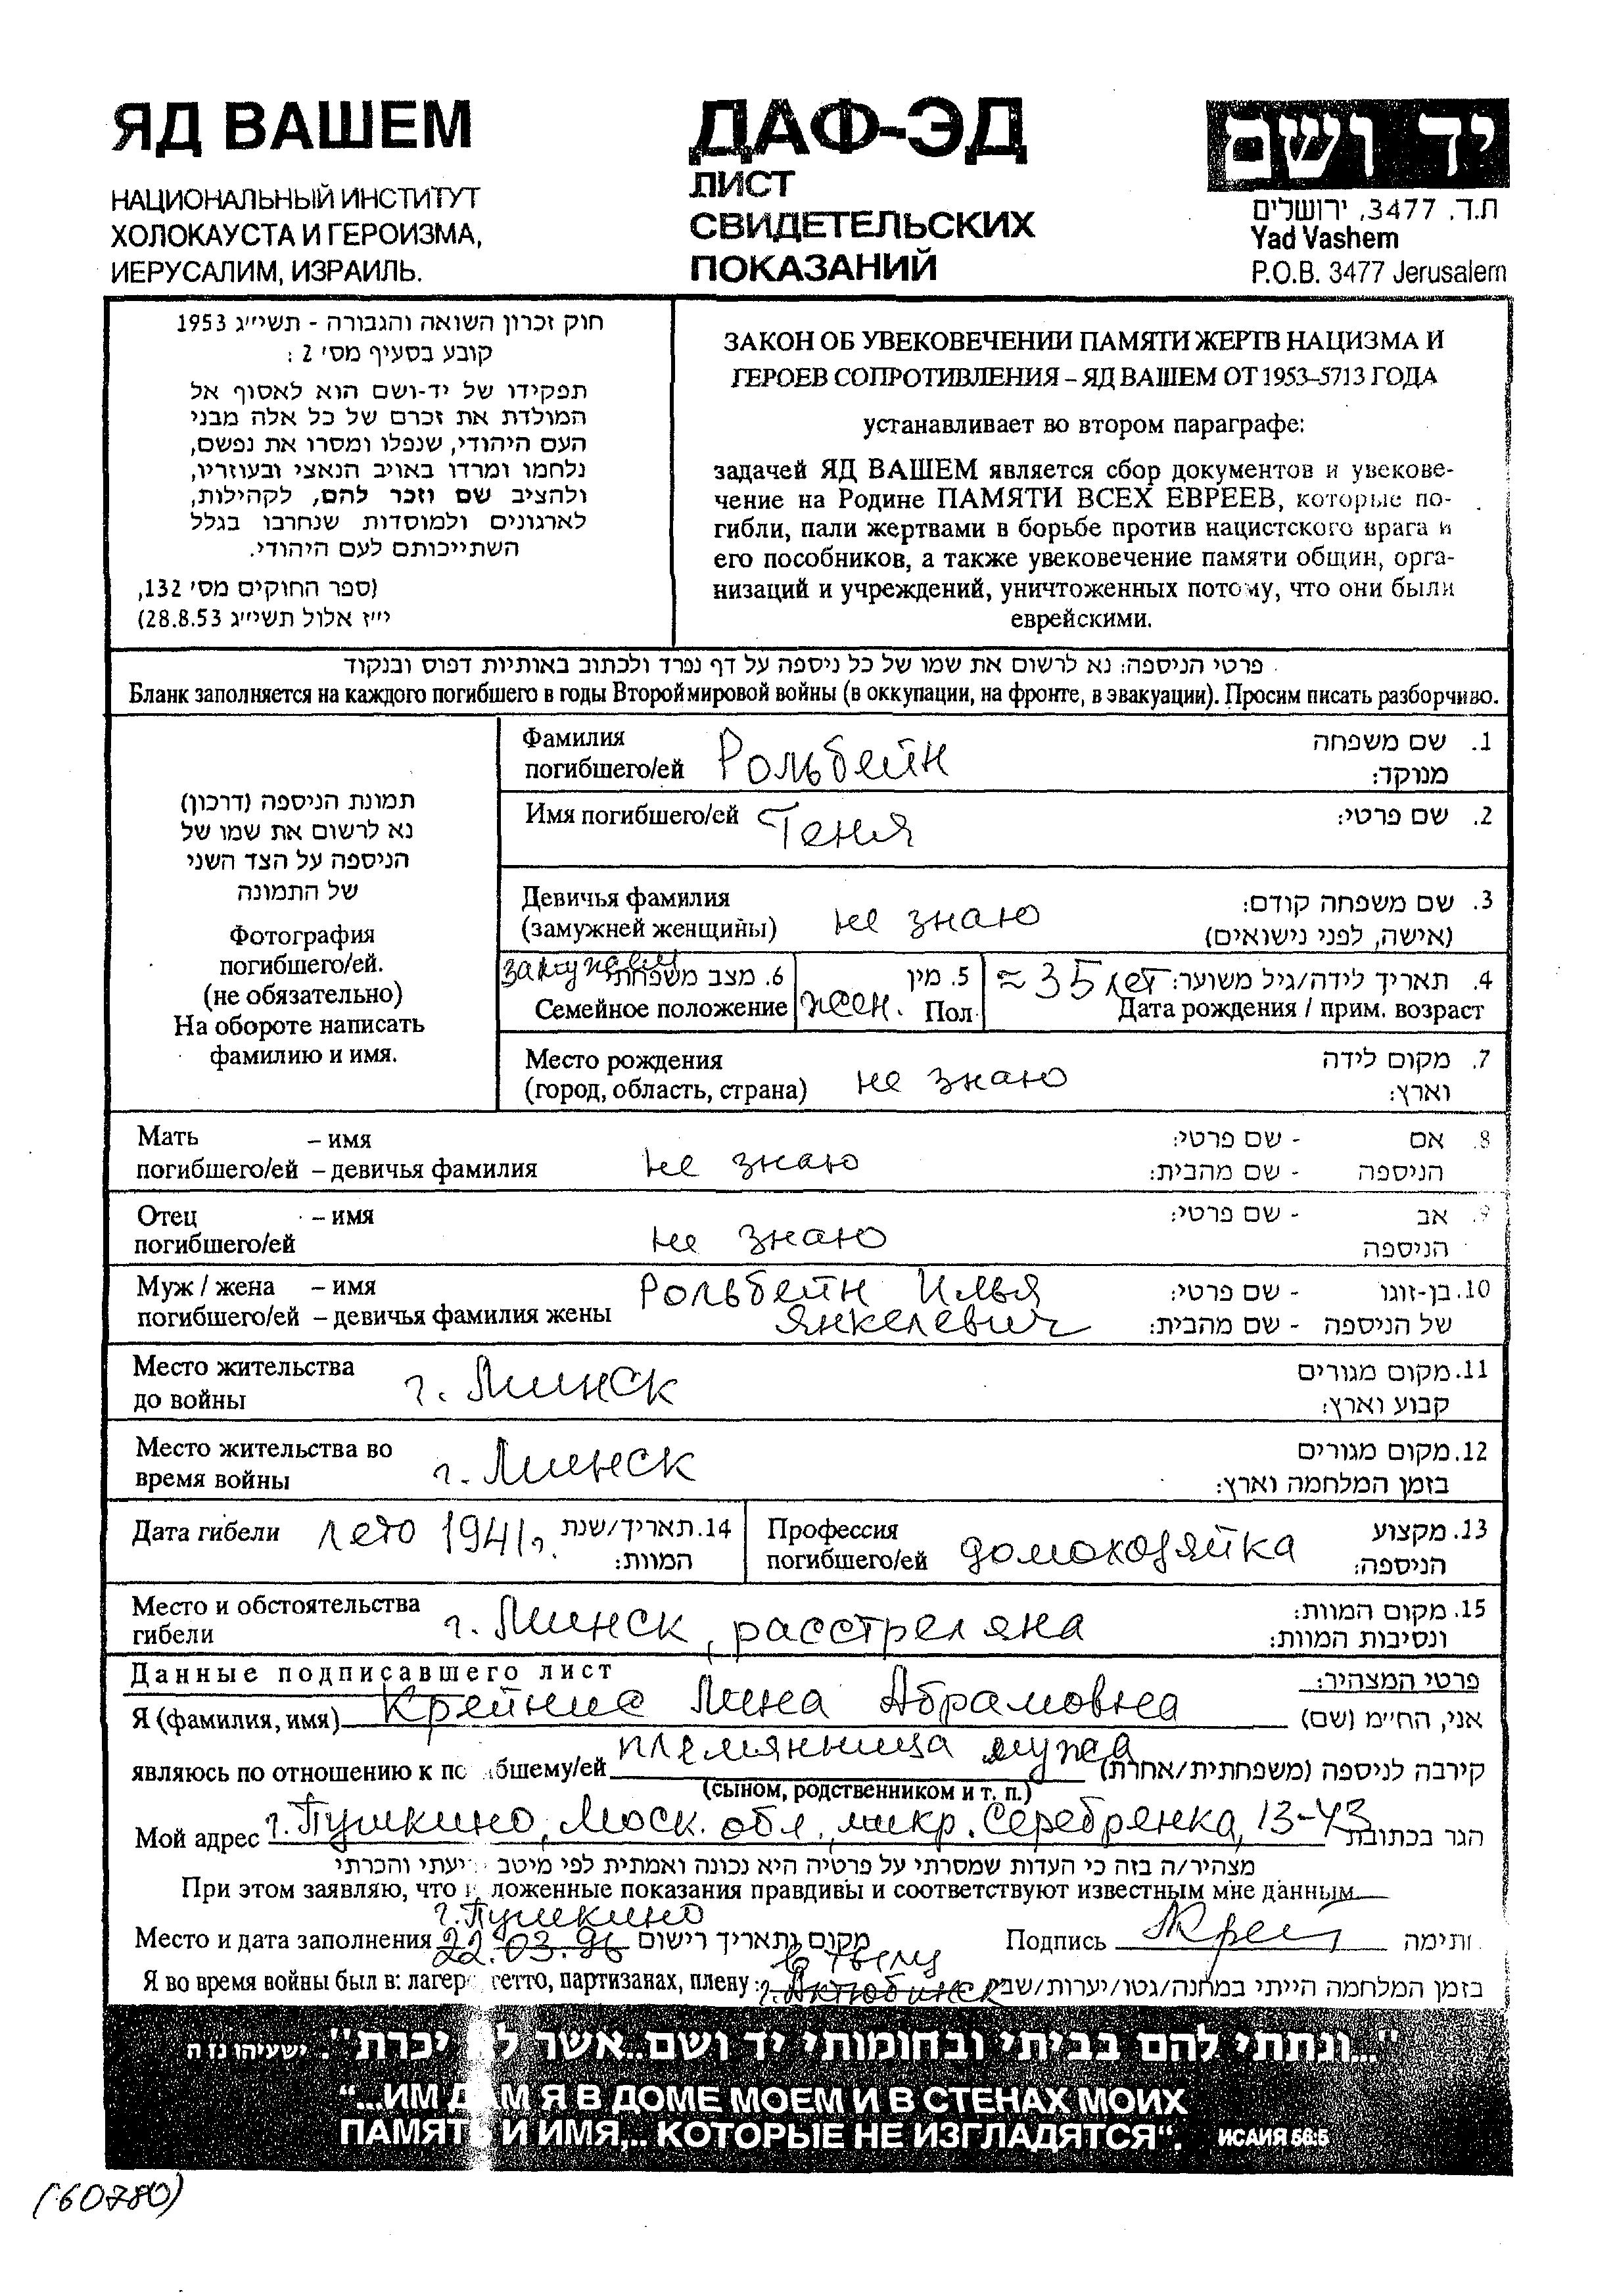 ЯД ВАШЕМ
НАЦИОНАЛЬНЫЙ ИНСТИТУТ
ХОЛОКАУСТА И ГЕРОИЗМА,
ИЕРУСАЛИМ, ИЗРАИЛЬ.
ДАФ-ЭД
ЛИСТ
СВИДЕТЕЛЬСКИХ
ПОКАЗАНИЙ
יד ושם
ת.ד. 3477, ירושלים
Yad Vashem
P.O.B. 3477 Jerusalem
חוק זכרון השואה והגבורה - תשי״ג 1953
קובע בסעיף מס׳ 2 :
תפקידו של יד-ושם הוא לאסוף אל
המולדת את זכרם של כל אלה מבני
העם היהודי, שנפלו ומסרו את נפשם,
נלחמו ומרדו באויב הנאצי ובעוזריו,
ולהציב שם וזכר להם, לקהילות,
לארגונים ולמוסדות שנחרבו בגלל
השתייכותם לעם היהודי.
(ספר החוקים מס׳ 132,
י״ז אלול תשי״ג 28.8.53)
ЗАКОН ОБ УВЕКОВЕЧЕНИИ ПАМЯТИ ЖЕРТВ НАЦИЗМА И
ГЕРОЕВ СОПРОТИВЛЕНИЯ – ЯД ВАШЕМ ОТ 1953–5713 ГОДА
устанавливает во втором параграфе:
задачей ЯД ВАШЕМ является сбор документов и увекове-
чение на Родине ПАМЯТИ ВСЕХ ЕВРЕЕВ, которые по-
гибли, пали жертвами в борьбе против нацистского врага и
его пособников, а также увековечение памяти общин, орга-
низаций и учреждений, уничтоженных потому, что они были
еврейскими.
פרטי הניספה: נא לרשום את שמו של כל ניספה על דף נפרד ולכתוב באותיות דפוס ובנקוד
Бланк заполняется на каждого погибшего в годы Второй мировой войны (в оккупации, на фронте, в эвакуации). Просим писать разборчиво.
תמונת הניספה (דרכון)
נא לרשום את שמו של
הניספה על הצד השני
של התמונה
Фотография
погибшего/ей.
(не обязательно)
На обороте написать
фамилию и имя.
Фамилия
погибшего/ей Рольбейн
1. שם משפחה
מנוקד:
Имя погибшего/ей Геня
2. שם פרטי:
Девичья фамилия
(замужней женщины) не знаю
3. שם משפחה קודם:
(אישה, לפני נישואים)
замужем 6. מצב משפחתי
Семейное положение
5. מין
жен. Пол
≈ 35 лет 4. תאריך לידה/גיל משוער:
Дата рождения / прим. возраст
Место рождения
(город, область, страна) не знаю
7. מקום לידה
וארץ:
Мать – имя
погибшего/ей – девичья фамилия не знаю
8. אם - שם פרטי:
הניספה - שם מהבית:
Отец – имя
погибшего/ей не знаю
9. אב - שם פרטי:
הניספה
Муж / жена – имя Рольбейн Илья
погибшего/ей – девичья фамилия жены Янкелевич
10. בן-זוגו - שם פרטי:
של הניספה - שם מהבית:
Место жительства
до войны г. Минск
11. מקום מגורים
קבוע וארץ:
Место жительства во
время войны г. Минск
12. מקום מגורים
בזמן המלחמה וארץ:
Дата гибели лето 1941г. 14. תאריך/שנת
המוות:
Профессия
погибшего/ей домохозяйка
13. מקצוע
הניספה:
Место и обстоятельства
гибели г. Минск, расстреляна
15. מקום המוות:
ונסיבות המוות:
Данные подписавшего лист
פרטי המצהיר:
Я (фамилия, имя) Крейнис Лина Абрамовна אני, הח״מ (שם)
являюсь по отношению к по бшему/ей племянница мужа קירבה לניספה (משפחתית/אחרת)
(сыном, родственником и т. п.)
Мой адрес г. Пушкино, Моск. обл., микр. Серебрянка, 13-43 הגר בכתובת
מצהיר/ה בזה כי העדות שמסרתי על פרטיה היא נכונה ואמתית לפי מיטב יעתי והכרתי
При этом заявляю, что ложенные показания правдивы и соответствуют известным мне данным
г. Пушкино
Место и дата заполнения 22.03.96 מקום ותאריך רישום Подпись Крей ותימה
в тылу
Я во время войны был в: лагере гетто, партизанах, плену: г. Актюбинск בזמן המלחמה הייתי במחנה/גטו/יערות/שבי
"...ונתתי להם בביתי ובחומותי יד ושם..אשר לא יכרת". ישעיהו נו ה
“...ИМ ДАМ Я В ДОМЕ МОЕМ И В СТЕНАХ МОИХ
ПАМЯТЬ И ИМЯ,.. КОТОРЫЕ НЕ ИЗГЛАДЯТСЯ“. ИСАИЯ 56:5
(60780)